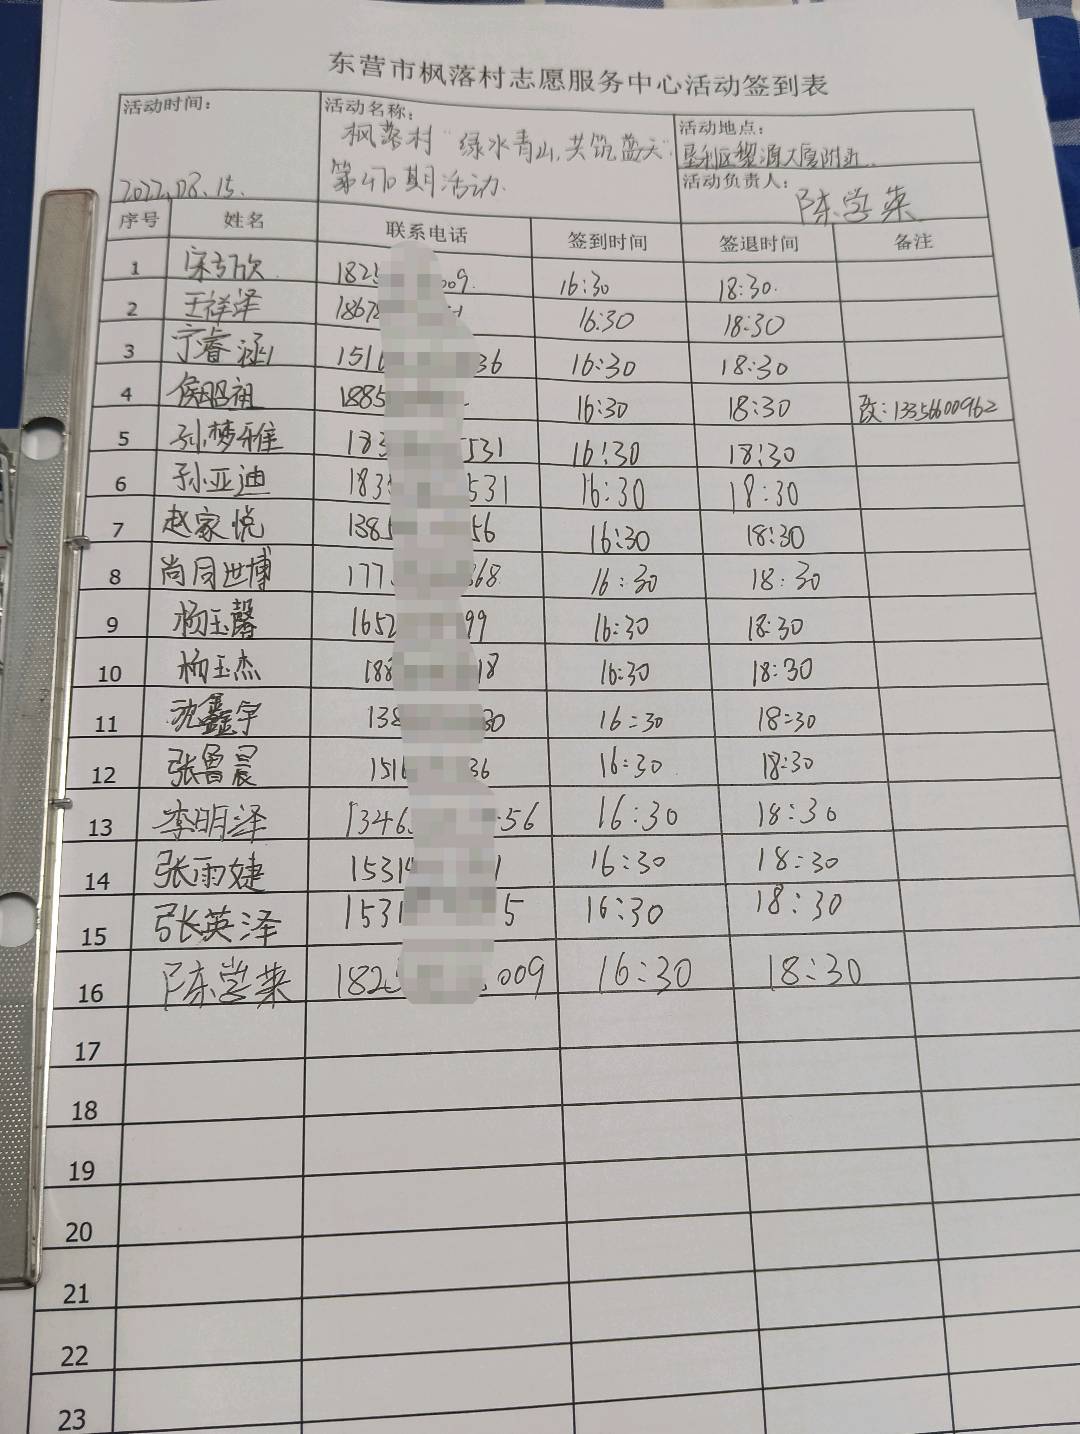 东营市枫落村志愿服务中心活动签到表
活动时间： 活动名称： 活动地点：
枫落村“绿水青山,共筑蓝天” 垦利区黎源大厦附近
2022.08.15. 第470期活动. 活动负责人： 陈学荣
序号 姓名 联系电话 签到时间 签退时间 备注
1 182 009. 16:30 18:30.
2 王祥泽 1867 16:30 18:30
3 宁睿涵 151 36 16:30 18:30
4 侯昭祖 1885 16:30 18:30 改:13356600962
5 孙梦雅 183 5531 16:30 18:30
6 孙亚迪 183 531 16:30 18:30
7 赵家悦 1385 56 16:30 18:30
8 尚同世博 177 868 16:30 18:30
9 杨玉馨 1652 99 16:30 18:30
10 杨玉杰 188 18 16:30 18:30
11 沈鑫宇 138 80 16:30 18:30
12 张鲁晨 1516 36 16:30 18:30
13 李明泽 1346 56 16:30 18:30
14 张雨婕 1531 1 16:30 18:30
15 张英泽 1531 5 16:30 18:30
16 陈学荣 182 009 16:30 18:30
17
18
19
20
21
22
23